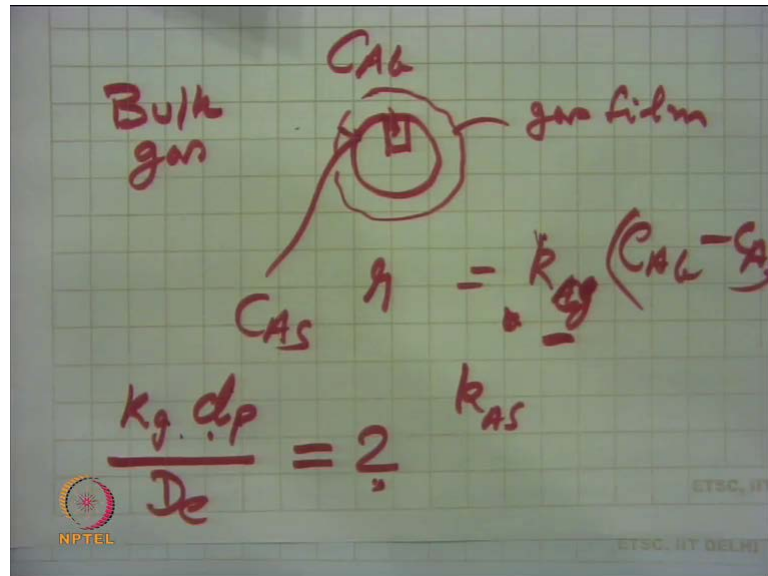 C_AG
Bulk gas
gas film
C_AS
r = k_g (C_AG - C_A
k_AS
k_g . d_p / D_e = 2
NPTEL
ETSC, IIT
ETSC, IIT DELHI